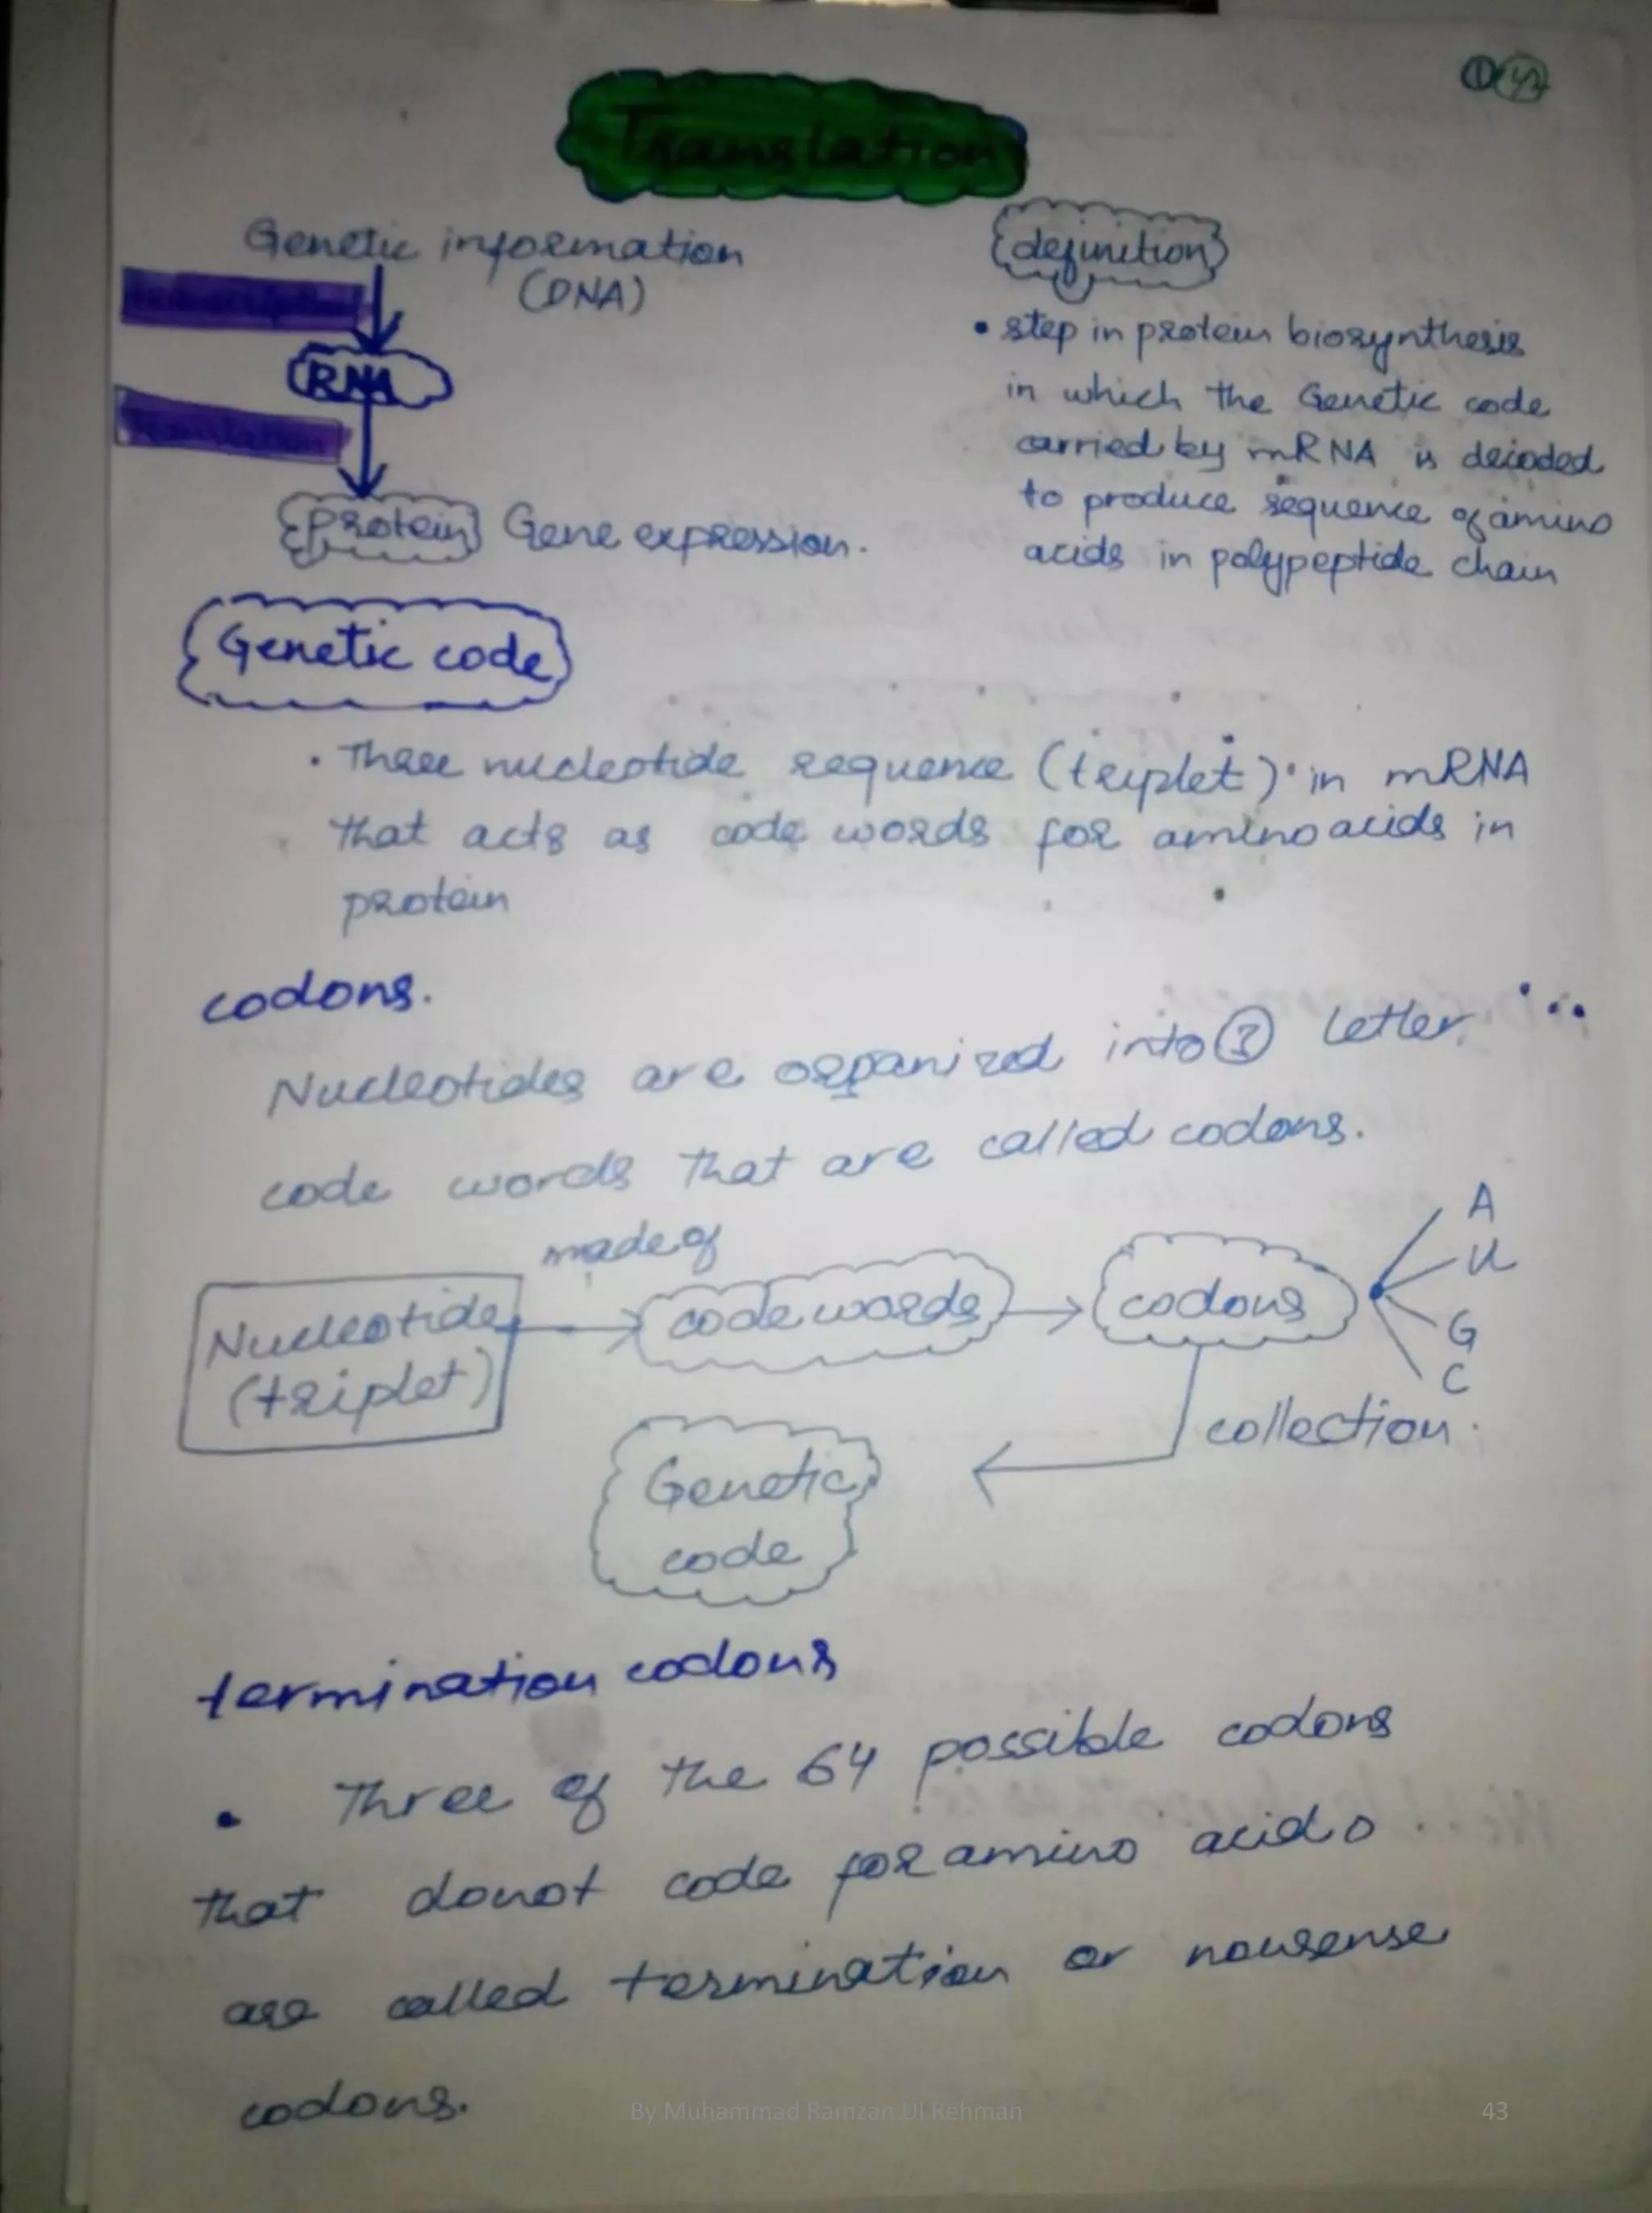 Translation
Genetic information
(DNA)
RNA
Translation
protein Gene expression.
definition
• step in protein biosynthesis
in which the Genetic code
carried by mRNA is decoded
to produce sequence of amino
acids in polypeptide chain
Genetic code
• Three nucleotide sequence (triplet) in mRNA
that acts as code words for amino acids in
protein
codons.
Nucleotides are organized into 3 letter
code words that are called codons.
made of
Nucleotide
(triplet)
code words
codons
A
U
G
C
collection.
Genetic
code
termination codons
• Three of the 64 possible codons
that donot code for amino acids
are called termination or nonsense
codons.
By Muhammad Ramzan Ul Rehman 43